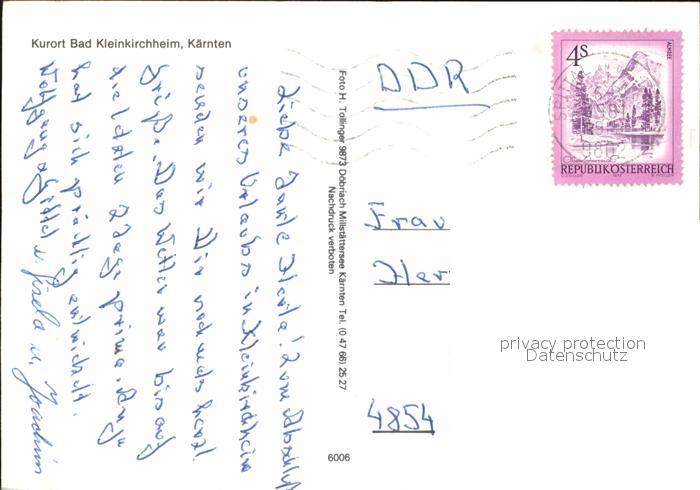 Kurort Bad Kleinkirchheim, Kärnten
Liebe Tante Herta! Zum Abschluß
unseres Urlaubs in Kleinkirchheim
senden wir Dir nochmals herzl.
Grüße. Das Wetter war bis auf
die letzten 2 Tage prima. Anja
hat sich prächtig entwickelt.
Gisela u. Joachim
Foto H. Tollinger 9873 Döbriach Millstättersee Kärnten Tel. (0 47 66) 25 27
Nachdruck verboten
6006
DDR
4S
ALMSEE
REPUBLIK ÖSTERREICH
9802
Frau
Her
4854
privacy protection
Datenschutz